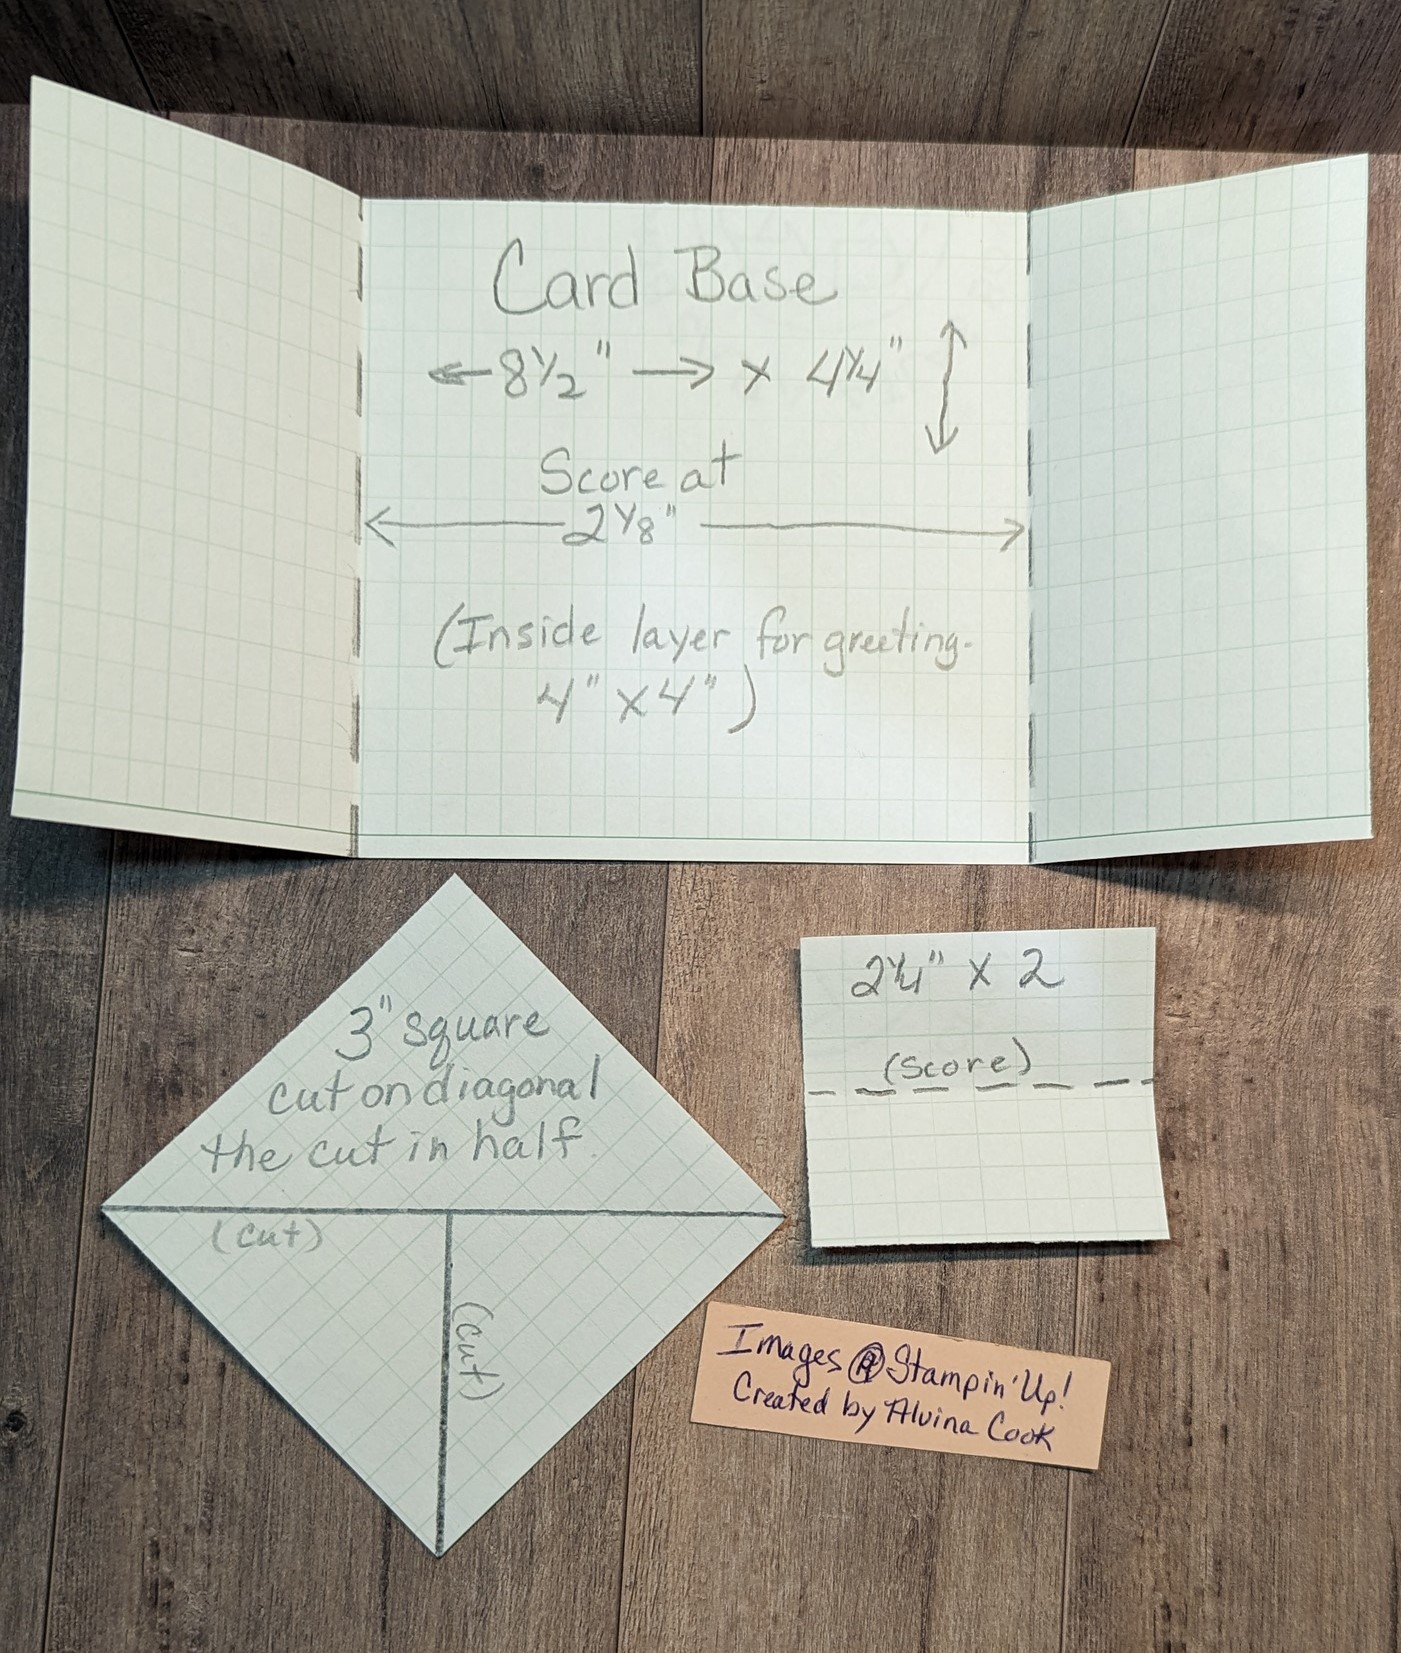 Card Base
8½" x 4¼"
Score at
2⅛"
(Inside layer for greeting.
4" x 4")
3" square
cut on diagonal
the cut in half.
(cut)
(cut)
2¼" x 2
(Score)
Images ® Stampin' Up!
Created by Alvina Cook